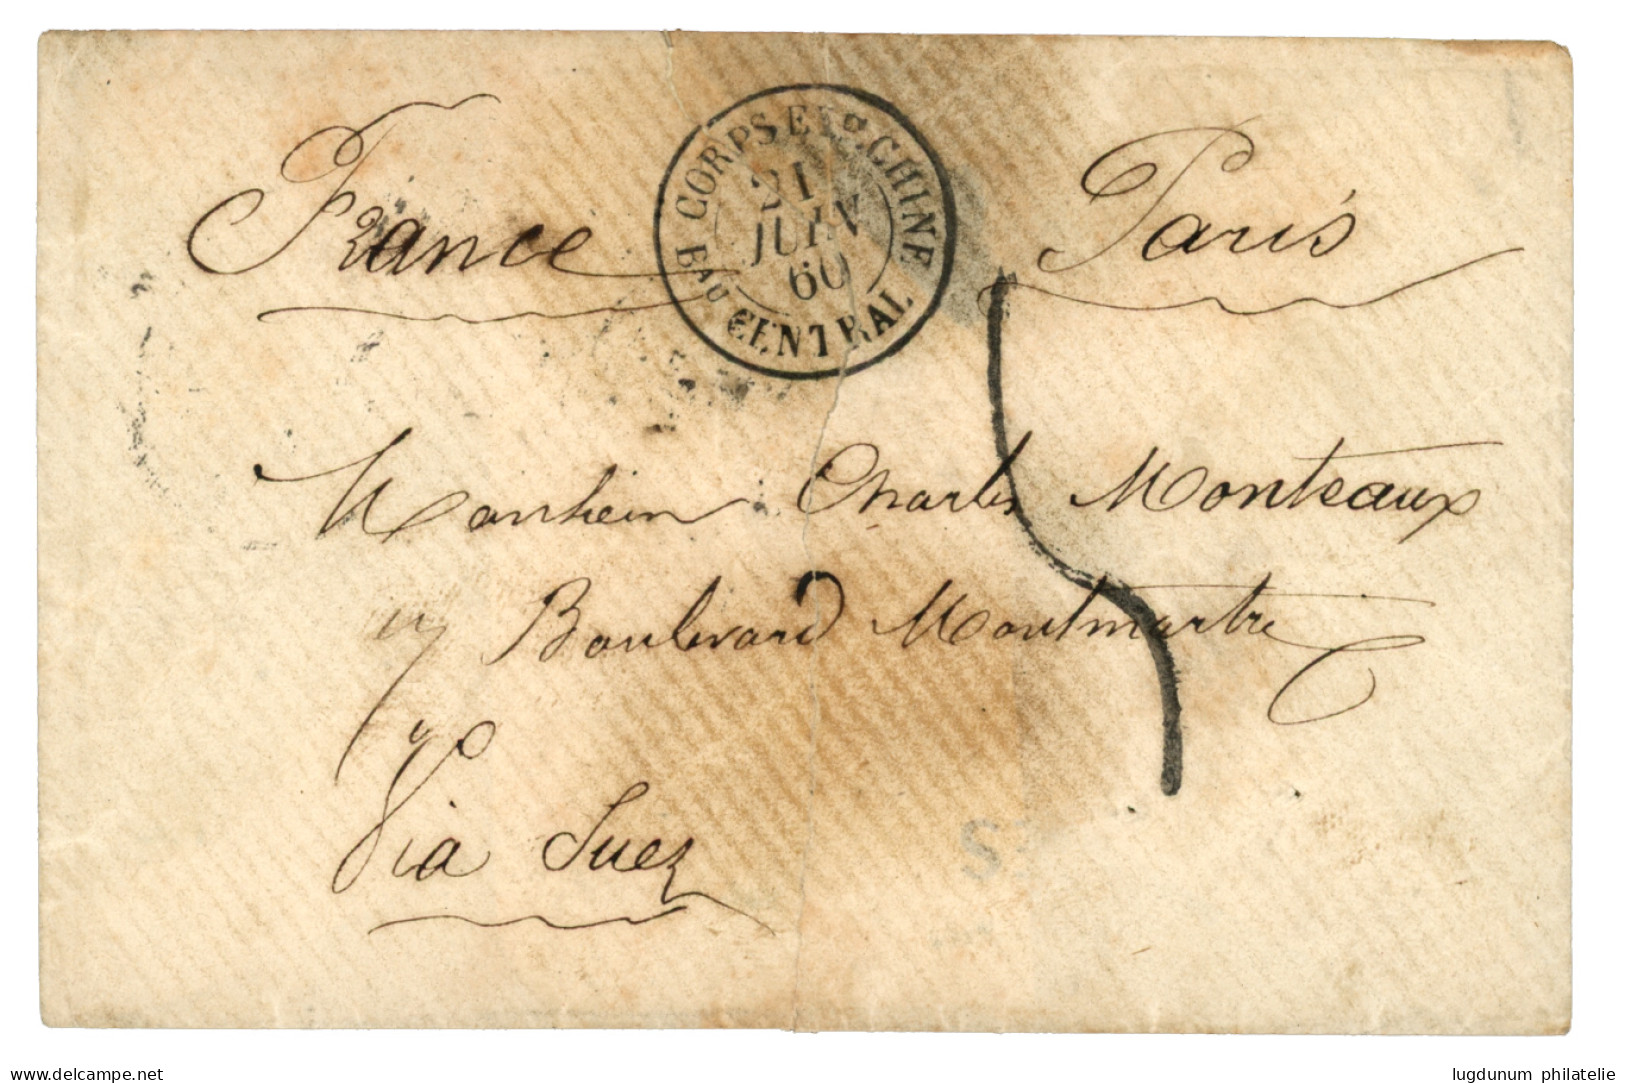 France Paris
CORPS EXP. CHINE
21
JUIN
60
BAU CENTRAL
5
Monsieur Charles Monteaux
17 Boulevard Montmartre
Via Suez
www.delcampe.net
lugdunum philatelie